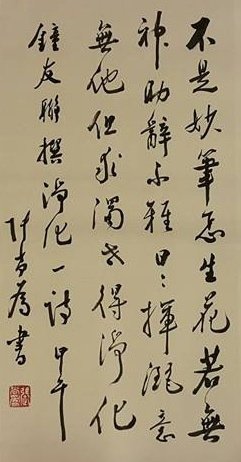 不是妙筆怎生花若無
神助辭不雅日〻揮灑意
無他但求濁世得淨化
鐘友聯撰淨化一詩 甲午
書